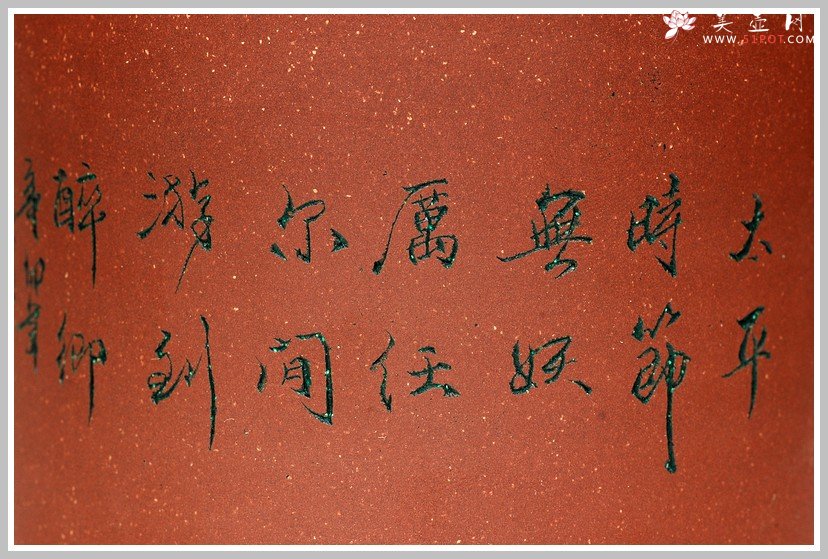 太平
時節
無妖
厲任
尔閒
游到
醉鄉
美壶网
WWW.51POT.COM